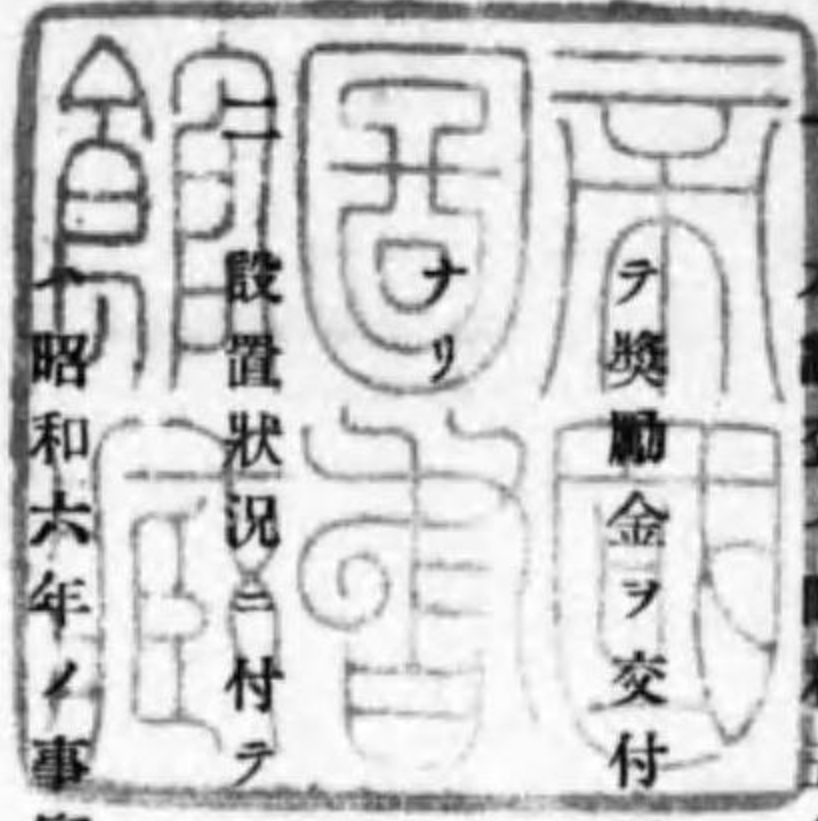 テ獎勵金ヲ交付
ナリ
二 設置狀況ニ付テ
昭和六年ノ事
帝國
圖書
館藏